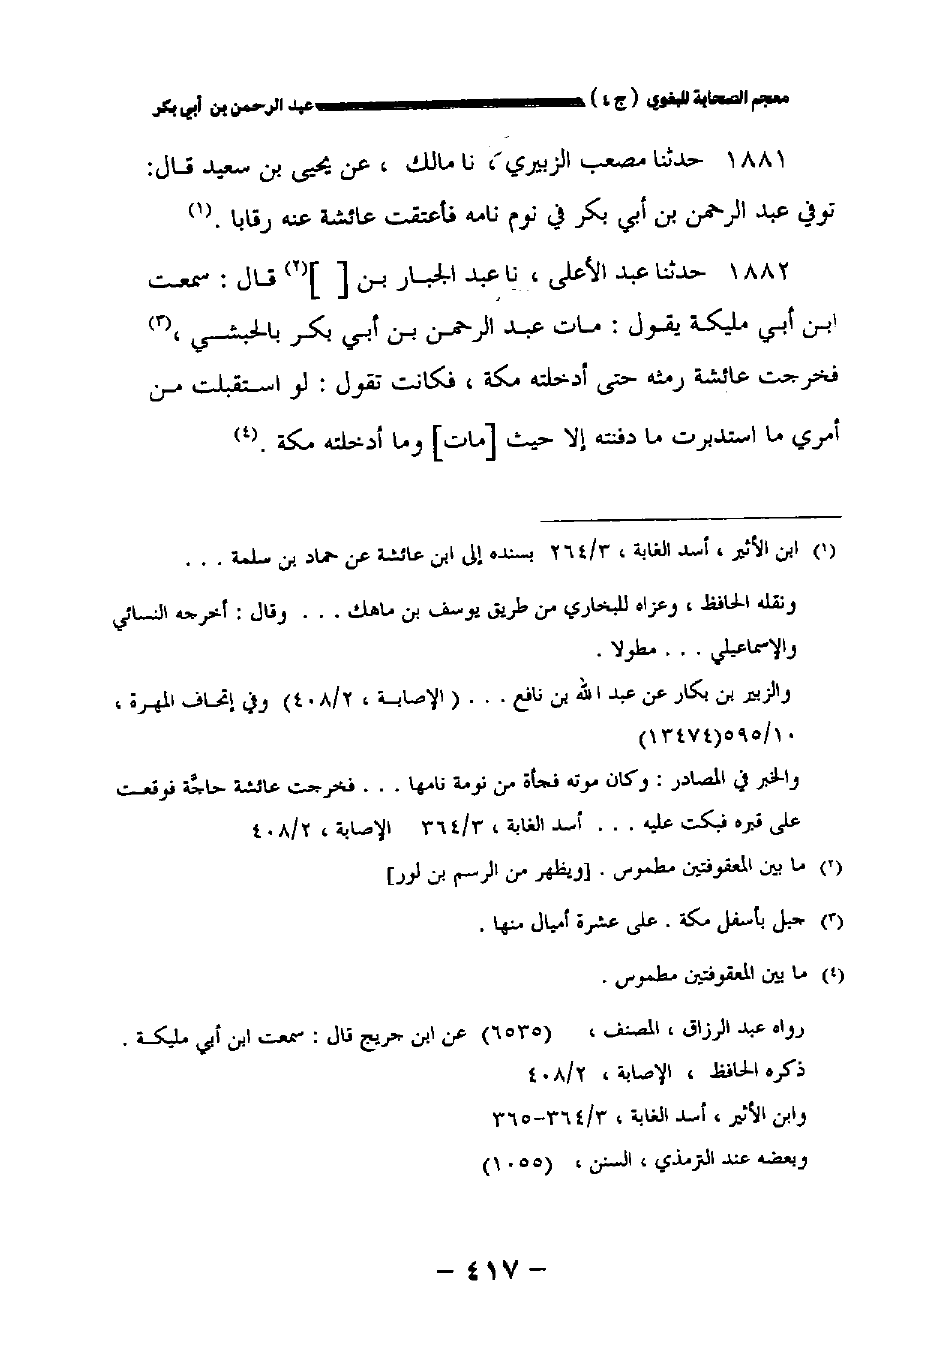 معجم الصحابة للبغوي (ج ٤) عبد الرحمن بن أبي بكر
١٨٨١ حدثنا مصعب الزبيري ، نا مالك ، عن يحيى بن سعيد قال:
توفي عبد الرحمن بن أبي بكر في نوم نامه فأعتقت عائشة عنه رقابا .(١)
١٨٨٢ حدثنا عبد الأعلى ، نا عبد الجبار بن [ ](٢) قال : سمعت
ابن أبي مليكة يقول : مات عبد الرحمن بن أبي بكر بالحبشي ،(٣)
فخرجت عائشة رمثه حتى أدخلته مكة ، فكانت تقول : لو استقبلت من
أمري ما استدبرت ما دفنته إلا حيث [مات] وما أدخلته مكة .(٤)
(١) ابن الأثير ، أسد الغابة ، ٢٦٤/٣ بسنده إلى ابن عائشة عن حماد بن سلمة . . .
ونقله الحافظ ، وعزاه للبخاري من طريق يوسف بن ماهك . . . وقال : أخرجه النسائي
والإسماعيلي . . . مطولا .
والزبير بن بكار عن عبد الله بن نافع . . . (الإصابة ، ٤٠٨/٢) وفي إتحاف المهرة ،
٥٩٥/١٠(١٣٤٧٤)
والخبر في المصادر : وكان موته فجأة من نومة نامها . . . فخرجت عائشة حاجَّة فوقعت
على قبره فبكت عليه . . . أسد الغابة ، ٣٦٤/٣ الإصابة ، ٤٠٨/٢
(٢) ما بين المعقوفتين مطموس . [ويظهر من الرسم بن لور]
(٣) جبل بأسفل مكة . على عشرة أميال منها .
(٤) ما بين المعقوفتين مطموس .
رواه عبد الرزاق ، المصنف ، (٦٥٣٥) عن ابن جريج قال : سمعت ابن أبي مليكة .
ذكره الحافظ ، الإصابة ، ٤٠٨/٢
وابن الأثير ، أسد الغابة ، ٣٦٤/٣-٣٦٥
وبعضه عند الترمذي ، السنن ، (١٠٥٥)
- ٤١٧ -